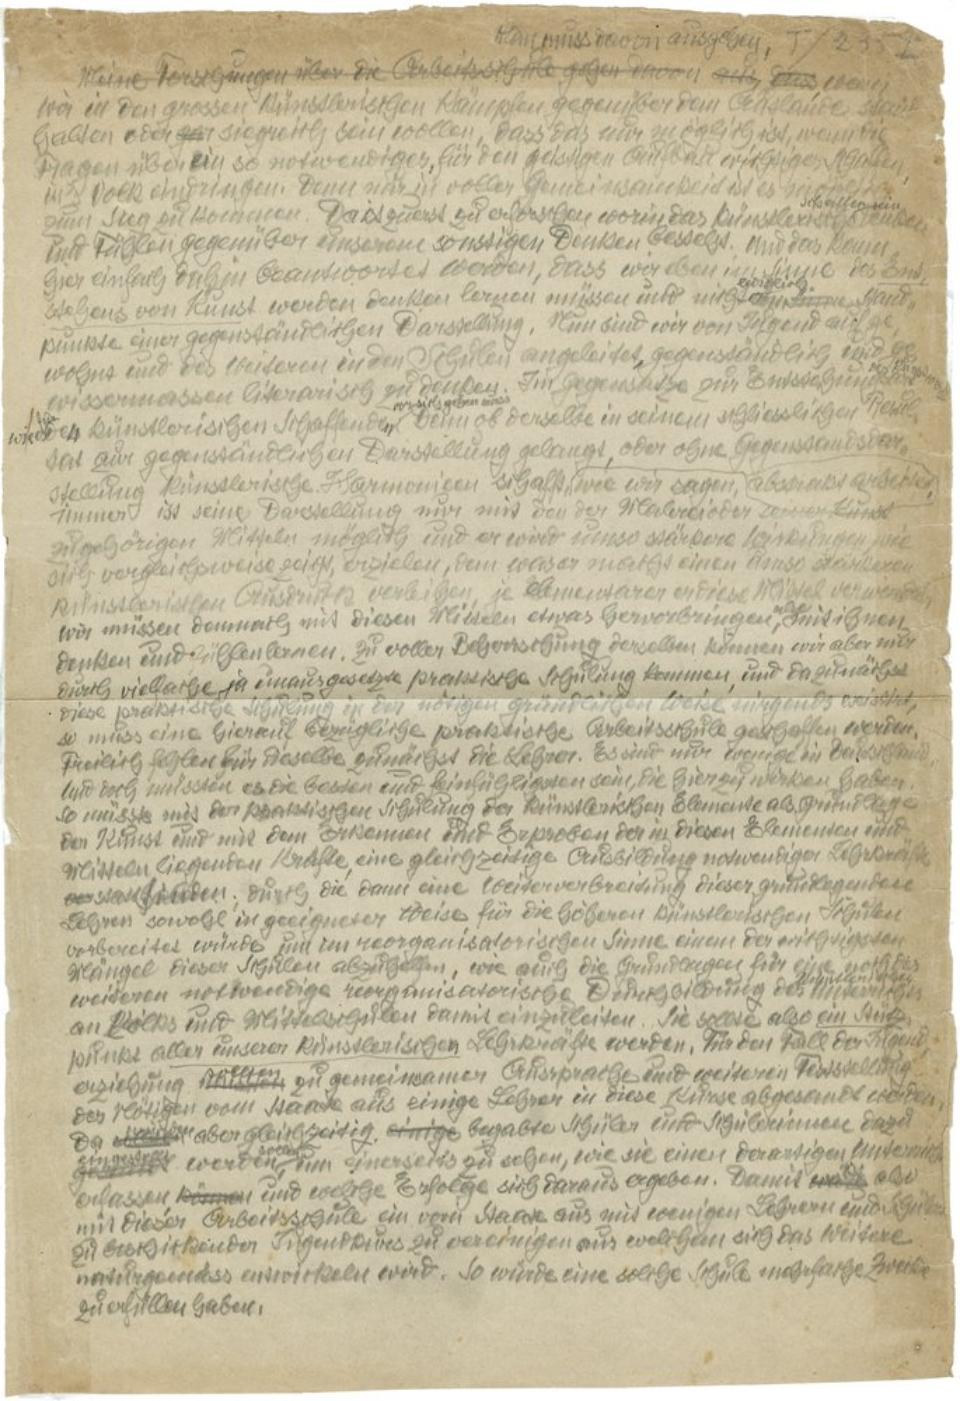 Man muss davon ausgehen, T/ 2
Meine Forschungen über die Arbeitsschule gehen davon aus, dass, wenn
wir in den grossen künstlerischen Kämpfen gegenüber dem Auslande stand
halten oder siegreich sein wollen, dass das nur möglich ist, wenn die
Fragen über ein so notwendiges, für den geistigen Aufbau wichtiges
ins Volk eindringen. Denn nur in voller Gemeinsamkeit ist es möglich
zum Sieg zu kommen. Da ist zuerst zu erforschen worin das künstlerische Schaffen, Denken
und Fühlen gegenüber unserem sonstigen Denken besteht. Und das kann
hier einfach dahin beantwortet werden, dass wir eben im Sinne des Ent-
stehens von Kunst werden denken lernen müssen und nicht Stand-
punkte einer gegenständlichen Darstellung. Nun sind wir von Jugend auf ge-
wohnt und des weiteren in den Schulen angeleitet, gegenständlich und ge-
wissermassen literarisch zu denken. Im Gegensatze zur Entstehung
künstlerischen Schaffenden vor sich gehen muss Denn ob derselbe in seinem schliesslichen Resul-
tat zur gegenständlichen Darstellung gelangt, oder ohne Gegenstandsdar-
stellung künstlerische Harmonien schafft, wie wir sagen, abstrakt arbeitet,
immer ist seine Darstellung nur mit den der Malerei oder Kunst
zugehörigen Mitteln möglich und er wird umso stärkere Wirkungen, wie
sich vergleichsweise zeigt, erzielen, dem was er macht einen umso stärkeren
künstlerischen Ausdruck verleihen, je elementarer er diese Mittel verwendet,
wir müssen demnach mit diesen Mitteln etwas hervorbringen, mit ihnen
denken und fühlen lernen. Zu voller Beherrschung derselben können wir aber nur
durch vielfache, ja unausgesetzte praktische Schulung kommen, und da zunächst
diese praktische Schulung in der nötigen gründlichen Weise nirgends existirt,
so muss eine hierauf bezügliche praktische Arbeitsschule geschaffen werden.
Freilich fehlen für dieselbe zunächst die Lehrer. Es sind nur wenige in Deutschland
und doch müssten es die besten und feinfühligsten sein, die hier zu wirken haben.
So müsste mit der praktischen Schulung der künstlerischen Elemente als Grundlage
der Kunst und mit dem Erkennen und Erproben der in diesen Elementen und
Mitteln liegenden Kräfte, eine gleichzeitige Ausbildung notwendiger Lehrkräfte
stattfinden, durch die dann eine Weiterverbreitung dieser grundlegenden
Lehren sowohl in geeigneter Weise für die höheren künstlerischen Schulen
vorbereitet würde um im reorganisatorischen Sinne einem der wichtigsten
Mängel dieser Schulen abzuhelfen, wie auch die Grundlagen für eine noch des
weiteren notwendige reorganisatorische Durchbildung des Unterrichtes
an Volks und Mittelschulen damit einzuleiten. Sie sollte also ein Stütz-
punkt aller unserer künstlerischen Lehrkräfte werden. Für den Fall der Jugend-
erziehung sollten zu gemeinsamer Aussprache und weiteren Feststellung
des Nötigen vom Staate aus einige Lehrer in diese Kurse abgesandt werden.
Da aber gleichzeitig einige begabte Schüler und Schülerinnen dazu
werden um einerseits zu sehen, wie sie einen derartigen Unterricht
erfassen können und welche Erfolge sich daraus ergeben. Damit also
mit dieser Arbeitsschule ein vom Staate aus mit wenigen Lehrern und Schülern
zu beschickender Jugendkurs zu vereinigen aus welchem sich das Weitere
naturgemäss entwickeln wird. So würde eine solche Schule mehrfache Zwecke
zu erfüllen haben.